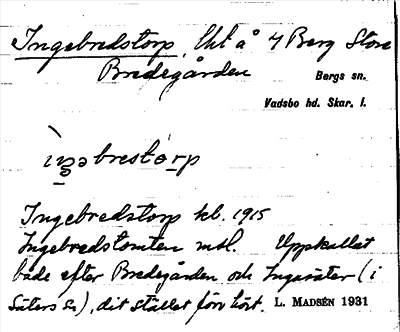 Ingebredstorp, lht å 4 Berg Store
Bredegården Bergs sn.
Vadsbo hd. Skar. l.
ìŋəbrestórp
Ingebredstorp kb. 1915
Ingebredstomten msl. Uppkallat
både efter Bredegården och Ingasäter (i
Säters sn), dit stället förr hört. L. MADSÉN 1931